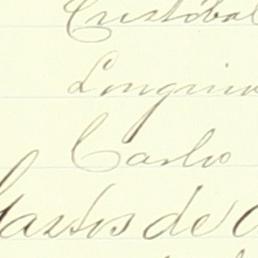 Cristóbal
Longino
Carlos
Gastos de